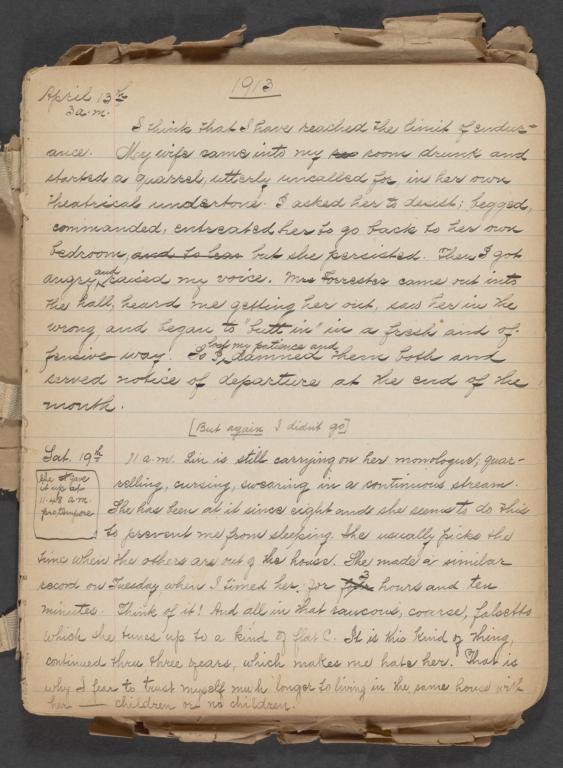 1913
April 13th
3 a.m.
I think that I have reached the limit of endur-
ance. My wife came into my room drunk and
started a quarrel, utterly uncalled for, in her own
theatrical undertone. I asked her to desist; begged,
commanded, entreated her to go back to her own
bedroom, and to leav but she persisted. Then I got
angry and raised my voice. Mrs Forrester came out into
the hall, heard me getting her out, saw her in the
wrong and began to "butt in" in a fresh and of-
fensive way. So I lost my patience and damned them both and
served notice of departure at the end of the
month.
[But again I didn't go]
Sat. 19th 11 a.m. Lin is still carrying on her monologue; quar-
relling, cursing, swearing in a continuous stream.
She has been at it since eight and she seems to do this
to prevent me from sleeping. She usually picks the
time when the others are out of the house. She made a similar
record on Tuesday when I timed her for 3 hours and ten
minutes. Think of it! And all in that raucous, coarse, falsetto
which she tunes up to a kind of flat C. It is this kind of thing,
continued thru three years, which makes me hate her. That is
why I fear to trust myself much longer to living in the same house with
her — children or no children.
she gave
it up at
11.48 a.m.
pro tempore